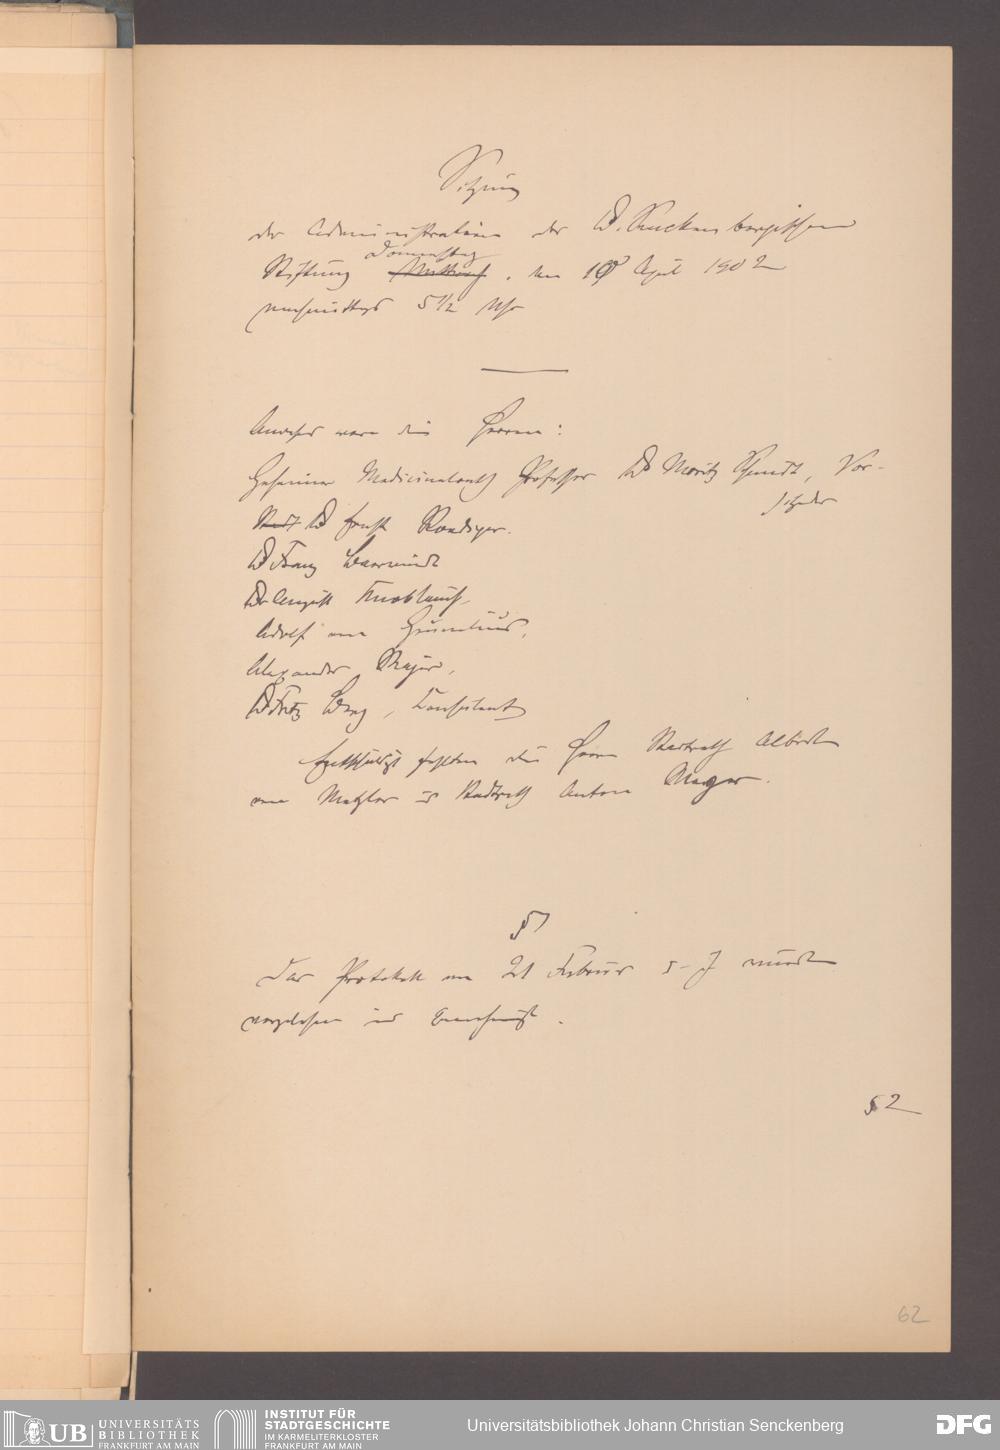 Sitzung
der Administration der Dr. Senckenbergischen
Donnerstag
Stiftung Mittwoch, den 10 April 1902
nachmittags 5 1/2 Uhr
Anwesend waren die Herren:
Geheimer Medicinalrath Professor Dr Moritz Schmidt, Vor-
sitzender
Stadt Dr Ernst Roediger.
Dr Franz
Dr August Knoblauch,
Adolf von Grunelius,
Alexander Majer,
Dr Fritz Berg, Consulent
Entschuldigt fehlten die Herrn Stadtrath Albert
von Metzler und Stadtrath Anton Meyer.
§ 1
Das Protokoll vom 21 Februar d. J. wurde
vorgelesen und genehmigt.
§ 2
62
UB UNIVERSITÄTS
BIBLIOTHEK
FRANKFURT AM MAIN
INSTITUT FÜR
STADTGESCHICHTE
IM KARMELITERKLOSTER
FRANKFURT AM MAIN
Universitätsbibliothek Johann Christian Senckenberg
DFG